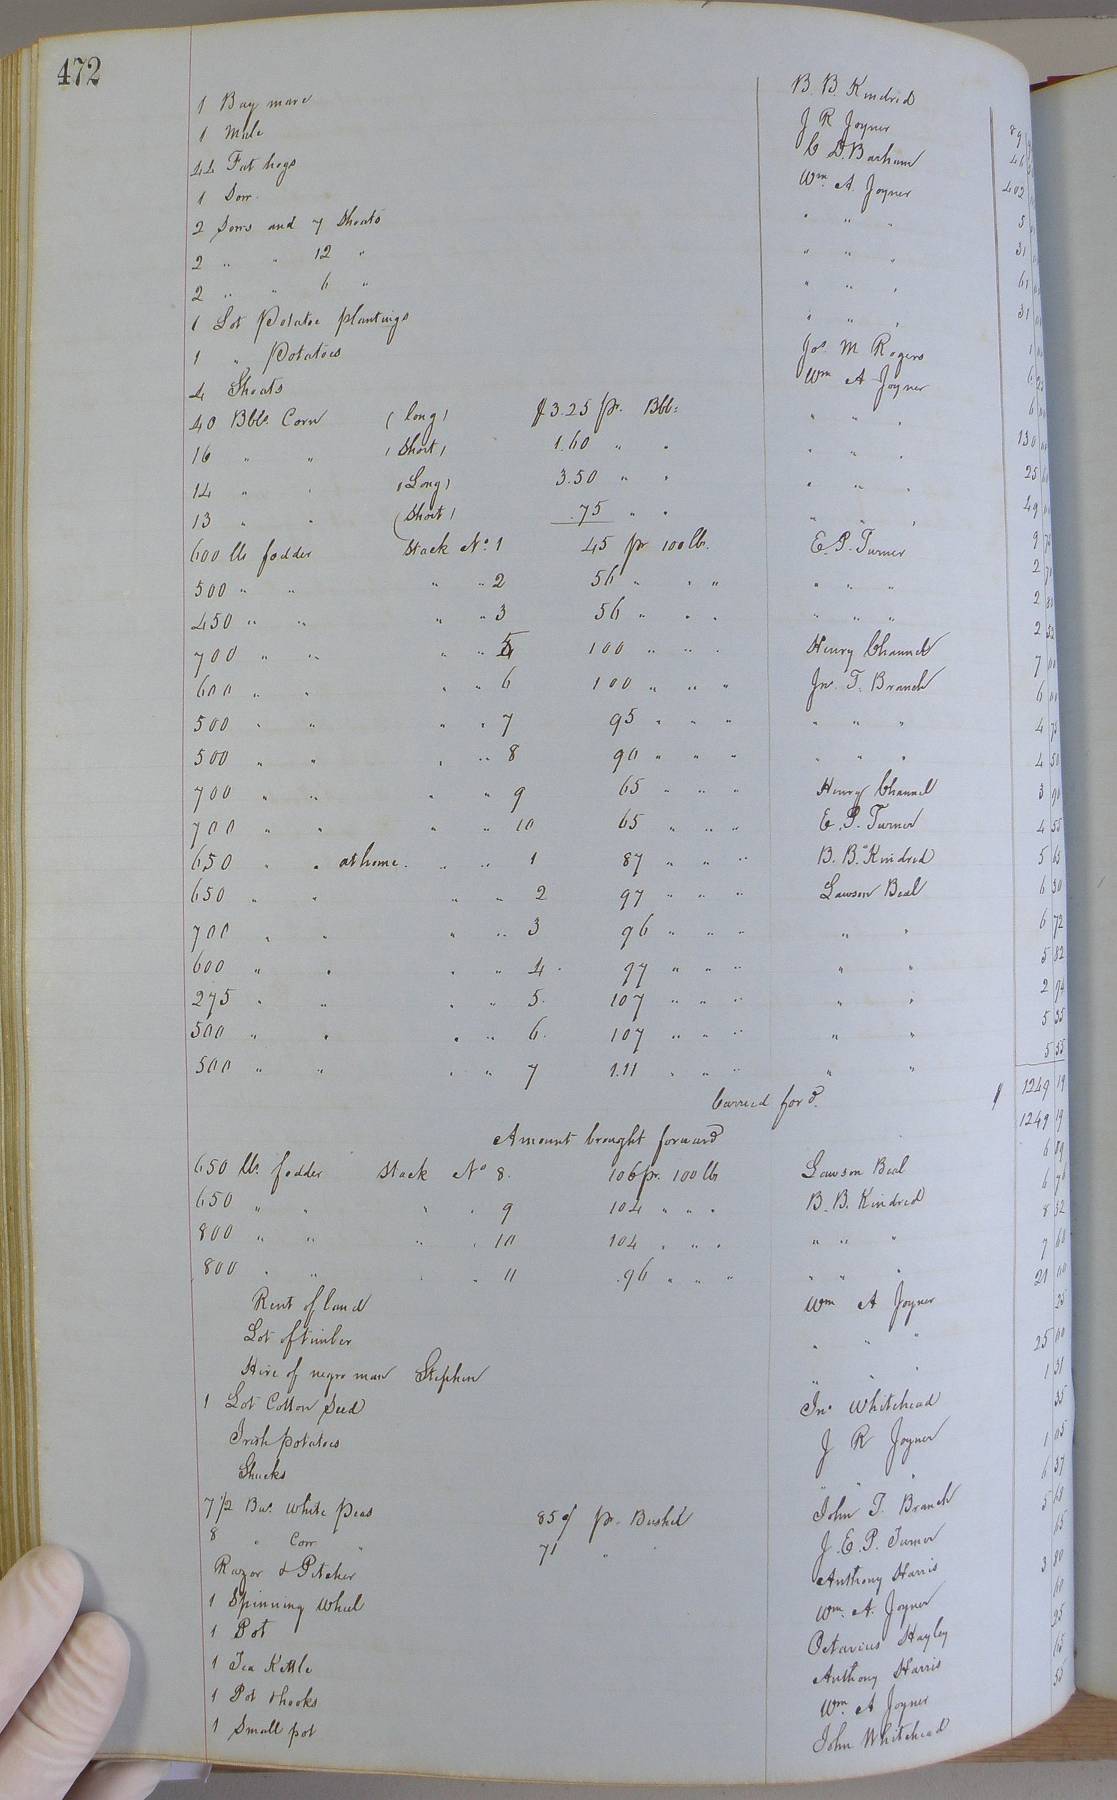 472
1 Bay mare B. B. Kindred
1 Mule J R Joyner 89
44 Fat hogs C D. Barham 46
1 Sow. Wm. A. Joyner 402
2 Sows and 7 Shoats " " " 5
2 " " 12 " " " " 31
2 " " 6 " " " " 61
1 Lot Potatoe plantings " " " 31
1 " Potatoes Jos. M Rogers 1
4 Shoats Wm A Joyner 6 25
40 Bbls. Corn (long) $3.25 pr. Bbl: " " " 6
16 " " (Short) 1.60 " " " " " 130
14 " " (Long) 3.50 " " " " " 25
13 " " (Short) .75 " " " " " 49
600 lbs fodder Stack No. 1 45 pr 100 lb. E. P. Turner 9 75
500 " " " " 2 56 " " " " " " 2
450 " " " " 3 56 " " " " " " 2 80
700 " " " " 5 100 " " " Henry Channel 2 52
600 " " " " 6 100 " " " Jno. T. Branch 7 00
500 " " " " 7 95 " " " " " " 6 00
500 " " " " 8 90 " " " " " " 4 75
700 " " " " 9 65 " " " Henry Channel 4 50
700 " " " " 10 65 " " " E. P. Turner 3 90
650 " " at home. " " 1 87 " " " B. B. Kindred 4 55
650 " " " " 2 97 " " " Lawson Beal 5 65
700 " " " " 3 96 " " " " " 6 30
600 " " " " 4. 97 " " " " " 6 72
275 " " " " 5. 107 " " " " " 5 82
500 " " " " 6. 107 " " " " " 2 94
500 " " " " 7 1.11 " " " " " 5 35
5 55
Carried ford. $ 1249 19
Amount brought forward 1249 19
650 lbs. fodder Stack No 8. 106 pr. 100 lb Lawson Beal 6 89
650 " " " " 9 104 " " " B. B. Kindred 6 76
800 " " " " 10 104 " " " " " " 8 32
800 " " " " 11 .96 " " " " " " 7 68
Rent of land Wm A Joyner 21 00
Lot of timber " " " 25
Hire of negro man Stephen " " " 25 00
1 Lot Cotton Seed Jno. Whitehead 1 31
Irish potatoes J R Joyner 35
Shucks " " " 1 05
7 1/2 Bus. White peas 85 c/ pr. Bushel John T. Branch 6 37
8 " Corn " 71 " " J. E. P. Turner 5 68
Razor & Pitcher Anthony Harris 65
1 Spinning Wheel Wm. A. Joyner 3 80
1 Pot Octavius Hayley 60
1 Tea Kettle Anthony Harris 25
1 Pot & hooks Wm. A Joyner
1 Small pot John Whitehead 55